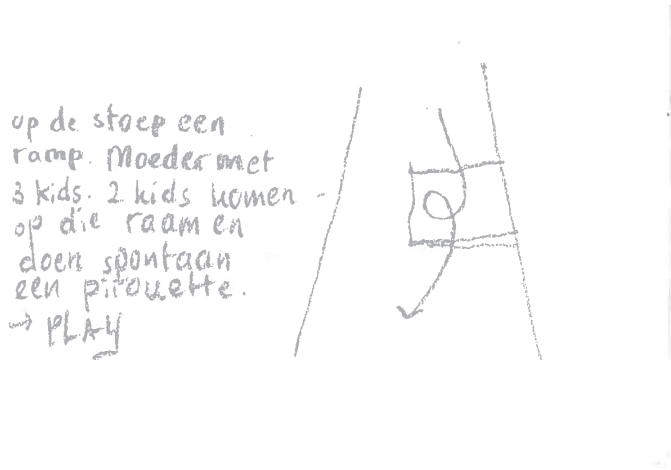 op de stoep een
ramp. Moeder met
3 kids. 2 kids komen
op die raam en
doen spontaan
een pirouette.
→ PLAY